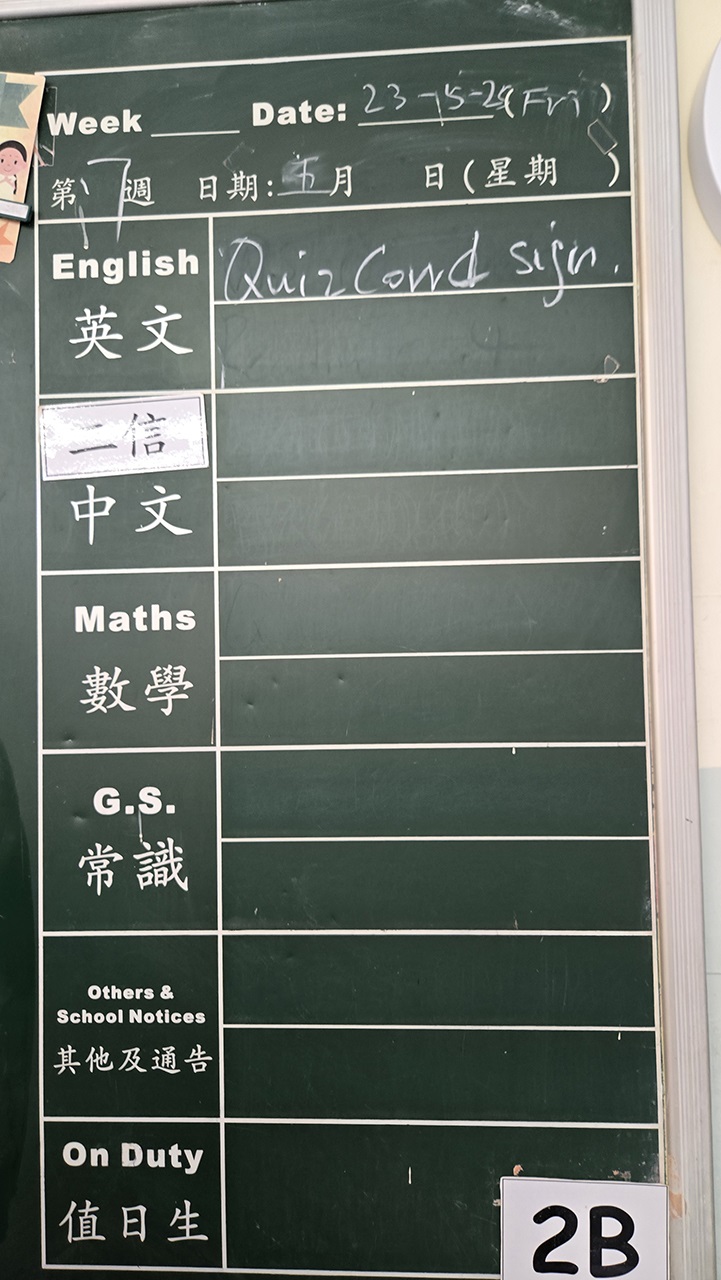 Week ____ Date: 23-15-24(Fri)
第17週 日期:五月 日(星期 )
English Quiz Corr & sign.
英文
二信
中文
Maths
數學
G.S.
常識
Others &
School Notices
其他及通告
On Duty
值日生
2B